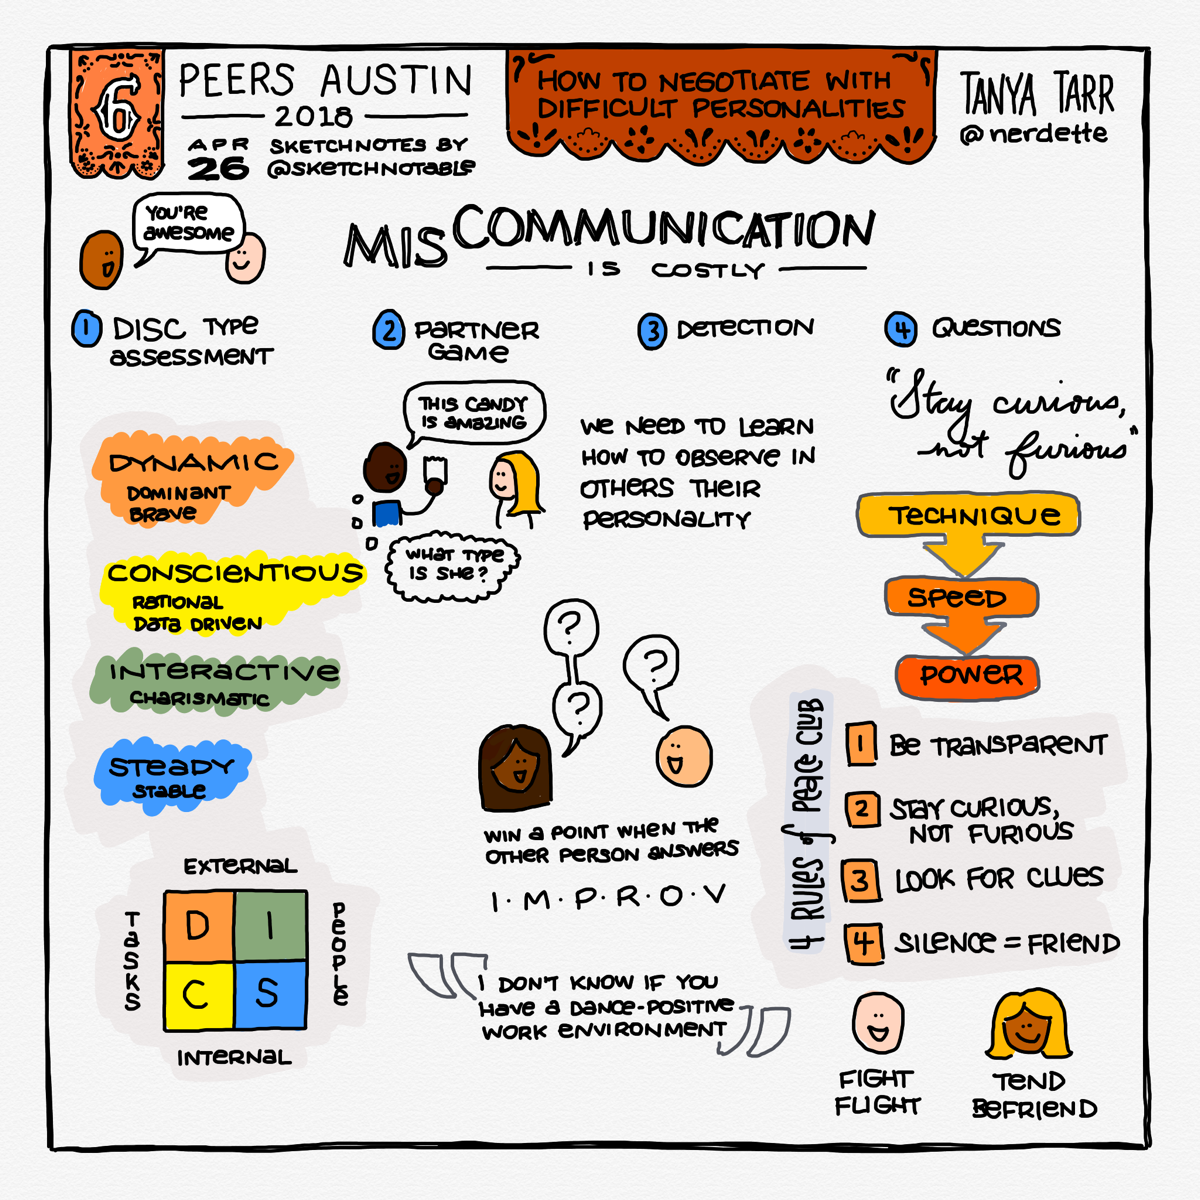 6
PEERS AUSTIN
2018
APR
26
SKETCHNOTES BY
@SKETCHNOTABLE
HOW TO NEGOTIATE WITH
DIFFICULT PERSONALITIES
TANYA TARR
@nerdette
YOU'RE
AWESOME
MISCOMMUNICATION
IS COSTLY
1 DISC TYPE
ASSESSMENT
DYNAMIC
DOMINANT
BRAVE
CONSCIENTIOUS
RATIONAL
DATA DRIVEN
INTERACTIVE
CHARISMATIC
STEADY
STABLE
EXTERNAL
TASKS
D I
C S
PEOPLE
INTERNAL
2 PARTNER
GAME
THIS CANDY
IS AMAZING
WHAT TYPE
IS SHE?
3 DETECTION
WE NEED TO LEARN
HOW TO OBSERVE IN
OTHERS THEIR
PERSONALITY
?
?
?
WIN A POINT WHEN THE
OTHER PERSON ANSWERS
I·M·P·R·O·V
"I DON'T KNOW IF YOU
HAVE A DANCE-POSITIVE
WORK ENVIRONMENT"
4 QUESTIONS
"Stay curious,
not furious"
TECHNIQUE
SPEED
POWER
4 RULES of PEACE CLUB
1 BE TRANSPARENT
2 STAY CURIOUS,
NOT FURIOUS
3 LOOK FOR CLUES
4 SILENCE = FRIEND
FIGHT
FLIGHT
TEND
BEFRIEND